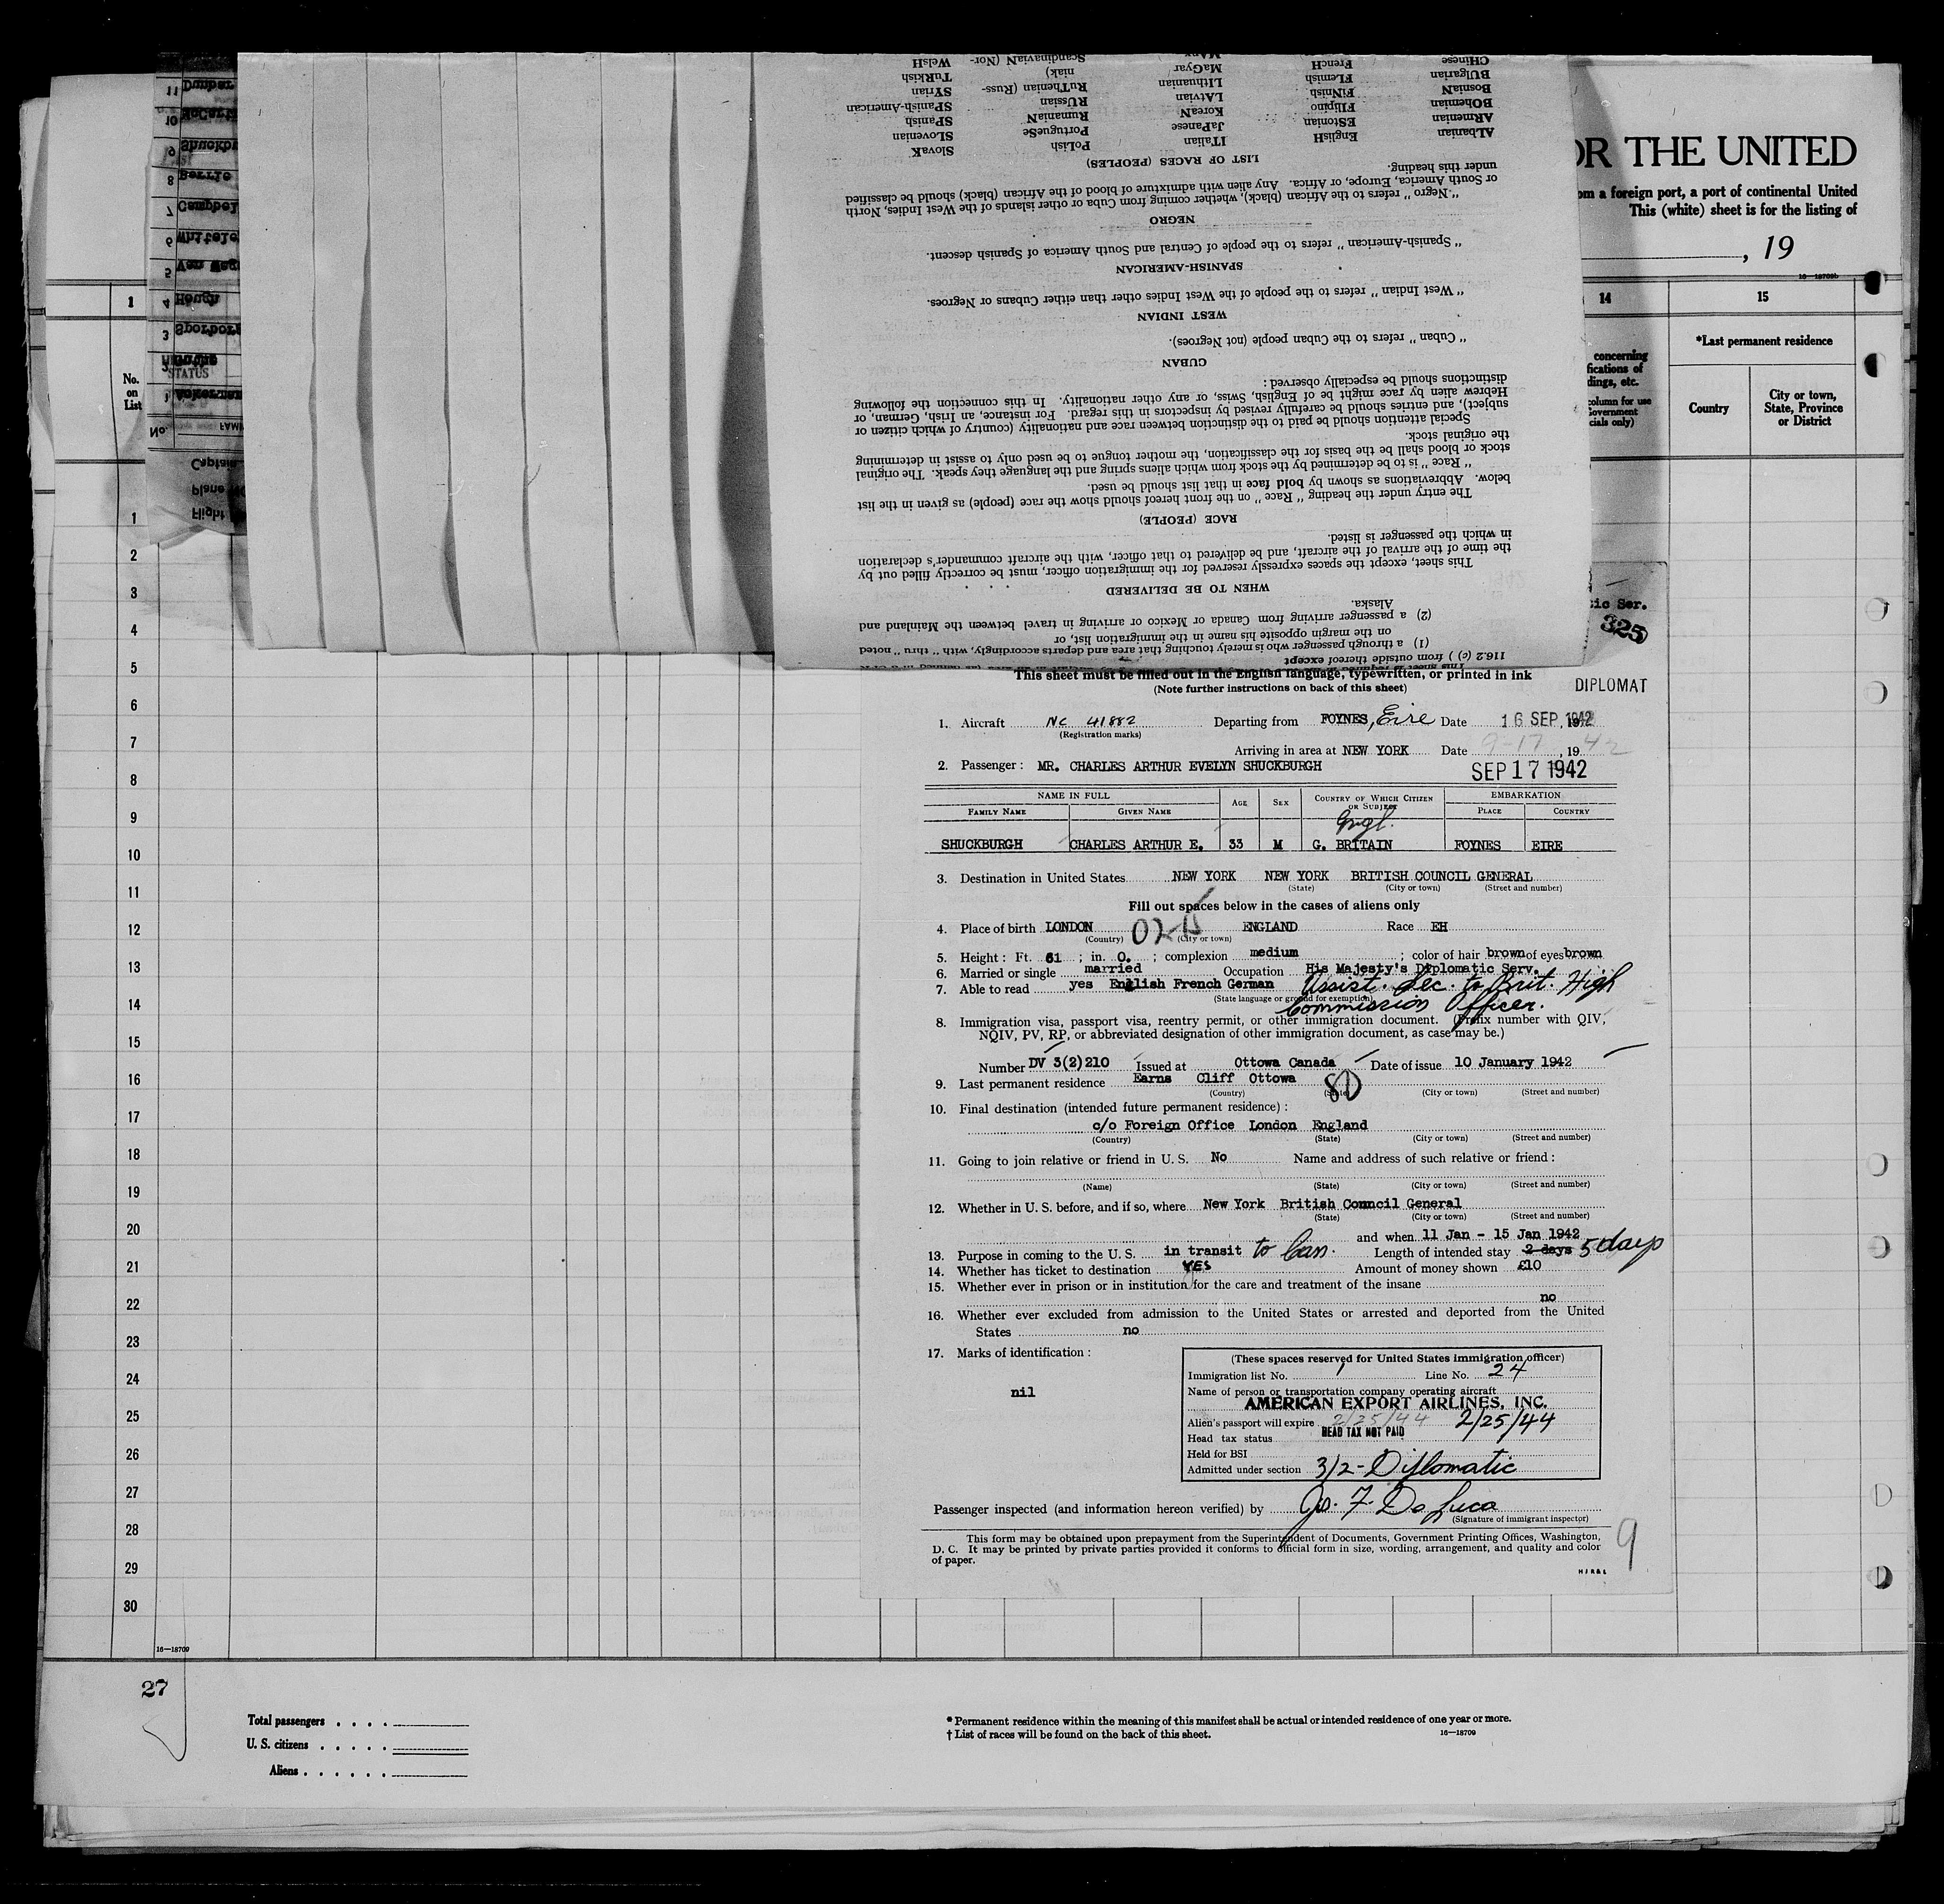 OR THE UNITED
om a foreign port, a port of continental United
This (white) sheet is for the listing of
, 19
16—18709b
1
14
15
No. on List
concerning
fications of
dings, etc.
column for use
Government
cials only)
*Last permanent residence
Country
City or town, State, Province or District
11 Dunbar
10 McCart
9 Shuckbu
8 Berrie
7 Campbel
6 Whitele
5 Van Wag
4 Hough
3 Sporborg
STATUS
1 Ackerman
No.
FAMI
Captain
Plane
Flight
116.2 (c) ) from outside thereof except
(1) a through passenger who is merely touching that area and departs accordingly, with "thru" noted
on the margin opposite his name in the immigration list, or
(2) a passenger arriving from Canada or Mexico or arriving in travel between the Mainland and
Alaska.
WHEN TO BE DELIVERED
This sheet, except the spaces expressly reserved for the immigration officer, must be correctly filled out by
the time of the arrival of the aircraft, and be delivered to that officer, with the aircraft commander's declaration
in which the passenger is listed.
RACE (PEOPLE)
The entry under the heading "Race" on the front hereof should show the race (people) as given in the list
below. Abbreviations as shown by bold face in that list should be used.
"Race" is to be determined by the stock from which aliens spring and the language they speak. The original
stock or blood shall be the basis for the classification, the mother tongue to be used only to assist in determining
the original stock.
Special attention should be paid to the distinction between race and nationality (country of which citizen or
subject), and entries should be carefully revised by inspectors in this regard. For instance, an Irish, German, or
Hebrew alien by race might be of English, Swiss, or any other nationality. In this connection the following
distinctions should be especially observed:
CUBAN
"Cuban" refers to the Cuban people (not Negroes).
WEST INDIAN
"West Indian" refers to the people of the West Indies other than either Cubans or Negroes.
SPANISH-AMERICAN
"Spanish-American" refers to the people of Central and South America of Spanish descent.
NEGRO
"Negro" refers to the African (black), whether coming from Cuba or other islands of the West Indies, North
or South America, Europe, or Africa. Any alien with admixture of blood of the African (black) should be classified
under this heading.
LIST OF RACES (PEOPLES)
ALbanian EnglisH ITaliaN PoLish SlovaK
ARmenian EStonian JaPanese PortugueSe SLovenian
BOhemian FIlipino KoreaN RumaniaN SPanish
BosniaN FiNnish LAtvian RUssian SPanish-American
BUlgarian FLemish LIthuanian RuThenian (Russniak) SYrian
CHinese FrencH MaGyar TuRkish
ScandinaviaN (Nor- WelsH
tic Ser.
325
DIPLOMAT
This sheet must be filled out in the English language, typewritten, or printed in ink
(Note further instructions on back of this sheet)
1. Aircraft NC 41882 Departing from FOYNES, Eire Date 16 SEP 1942
(Registration marks)
Arriving in area at NEW YORK Date 9-17, 1942
2. Passenger: MR. CHARLES ARTHUR EVELYN SHUCKBURGH SEP 17 1942
NAME IN FULL AGE SEX COUNTRY OF WHICH CITIZEN OR SUBJECT EMBARKATION
FAMILY NAME GIVEN NAME PLACE COUNTRY
Engl.
SHUCKBURGH CHARLES ARTHUR E. 33 M G. BRITAIN FOYNES EIRE
3. Destination in United States NEW YORK NEW YORK BRITISH COUNCIL GENERAL
(State) (City or town) (Street and number)
Fill out spaces below in the cases of aliens only
4. Place of birth LONDON ENGLAND Race EH
(Country) (City or town)
5. Height: Ft. 61 ; in. 0. ; complexion medium ; color of hair brown of eyes brown
6. Married or single married Occupation His Majesty's Diplomatic Serv.
7. Able to read yes English French German Assist. Sec. to Brit. High
(State language or ground for exemption)
Commission Officer.
8. Immigration visa, passport visa, reentry permit, or other immigration document. (Prefix number with QIV,
NQIV, PV, RP, or abbreviated designation of other immigration document, as case may be.)
Number DV 3(2)210 Issued at Ottowa Canada Date of issue 10 January 1942
9. Last permanent residence Earns Cliff Ottowa
(Country) (State) (City or town) (Street and number)
10. Final destination (intended future permanent residence):
c/o Foreign Office London England
(Country) (State) (City or town) (Street and number)
11. Going to join relative or friend in U. S. No Name and address of such relative or friend:
(Name) (State) (City or town) (Street and number)
12. Whether in U. S. before, and if so, where New York British Council General
(State) (City or town) (Street and number)
and when 11 Jan - 15 Jan 1942
13. Purpose in coming to the U. S. in transit to Can. Length of intended stay 2 days 5 days
14. Whether has ticket to destination YES Amount of money shown £10
15. Whether ever in prison or in institution for the care and treatment of the insane
no
16. Whether ever excluded from admission to the United States or arrested and deported from the United
States no
17. Marks of identification:
nil
(These spaces reserved for United States immigration officer)
Immigration list No. 1 Line No. 24
Name of person or transportation company operating aircraft
AMERICAN EXPORT AIRLINES, INC.
Alien's passport will expire 2/25/44 2/25/44
Head tax status HEAD TAX NOT PAID
Held for BSI
Admitted under section 3/2 - Diplomatic
Passenger inspected (and information hereon verified) by Jo. F. DeLuca
(Signature of immigrant inspector)
This form may be obtained upon prepayment from the Superintendent of Documents, Government Printing Offices, Washington,
D. C. It may be printed by private parties provided it conforms to official form in size, wording, arrangement, and quality and color
of paper.
9
1
2
3
4
5
6
7
8
9
10
11
12
13
14
15
16
17
18
19
20
21
22
23
24
25
26
27
28
29
30
16—18709
27
Total passengers
U. S. citizens
Aliens
* Permanent residence within the meaning of this manifest shall be actual or intended residence of one year or more.
† List of races will be found on the back of this sheet.
16—18709